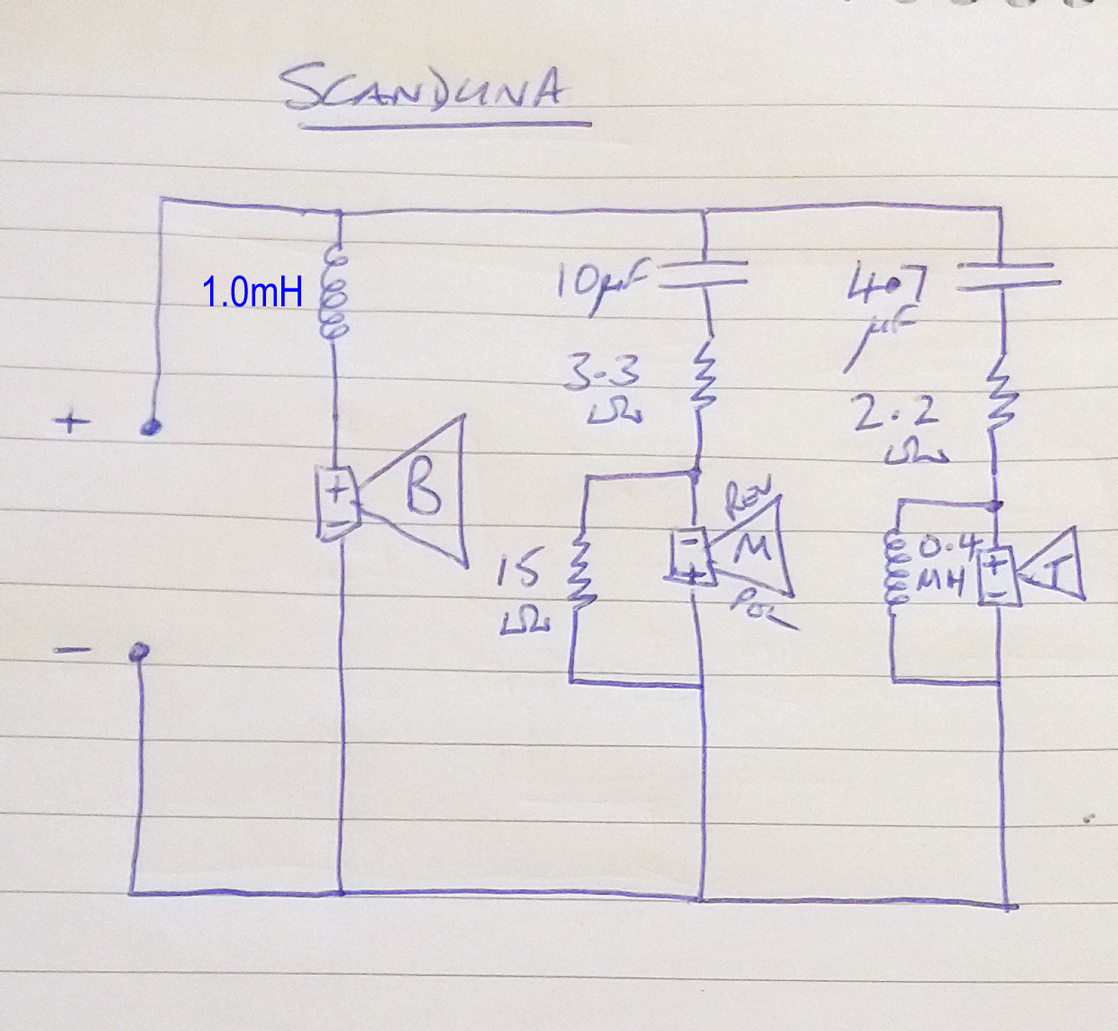 SCANDUNA
1.0mH
10µF
4.7
µF
3.3
Ω
2.2
Ω
+
B
+
-
REV
-
M
+
POL
15
Ω
0.4
MH
+
-
T
-